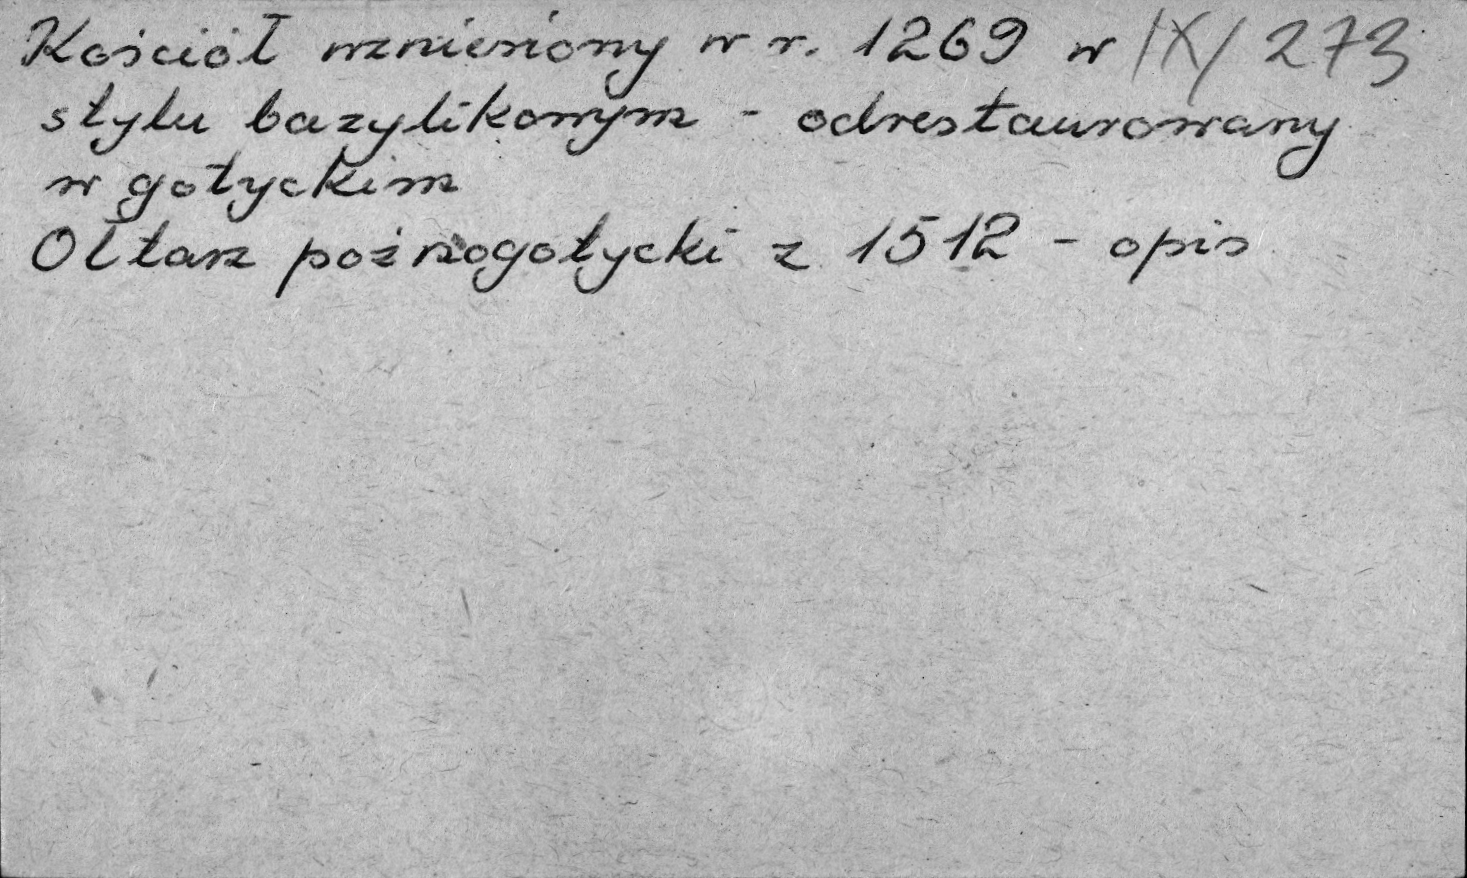 Kościół wzniesiony w r. 1269 w IX/273
stylu bazylikowym - odrestaurowany
w gotyckim
Ołtarz poźnogotycki z 1512 - opis